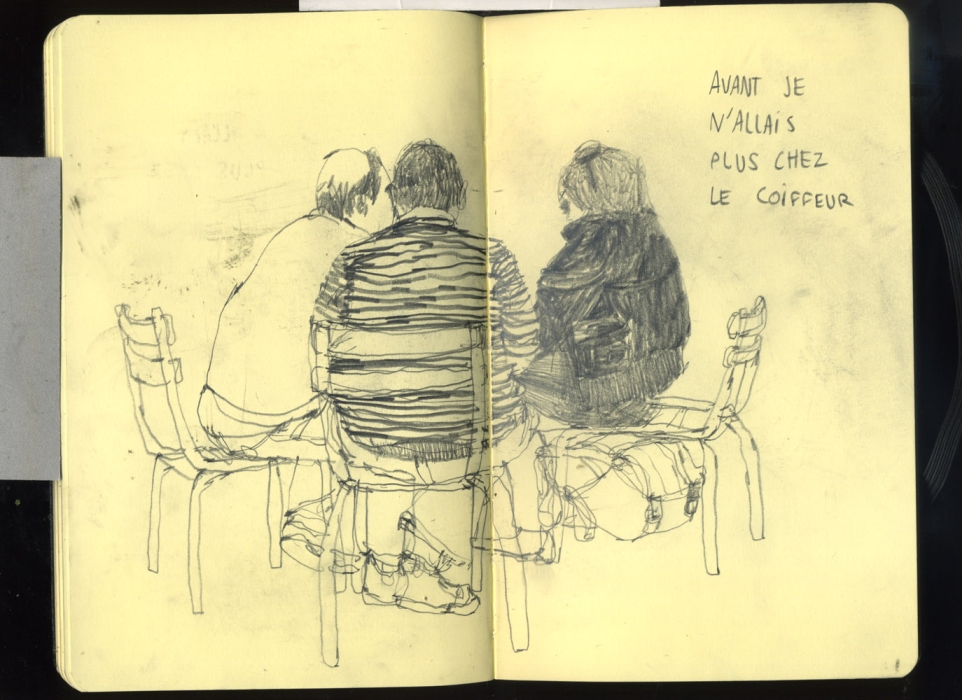 AVANT JE
N'ALLAIS
PLUS CHEZ
LE COIFFEUR